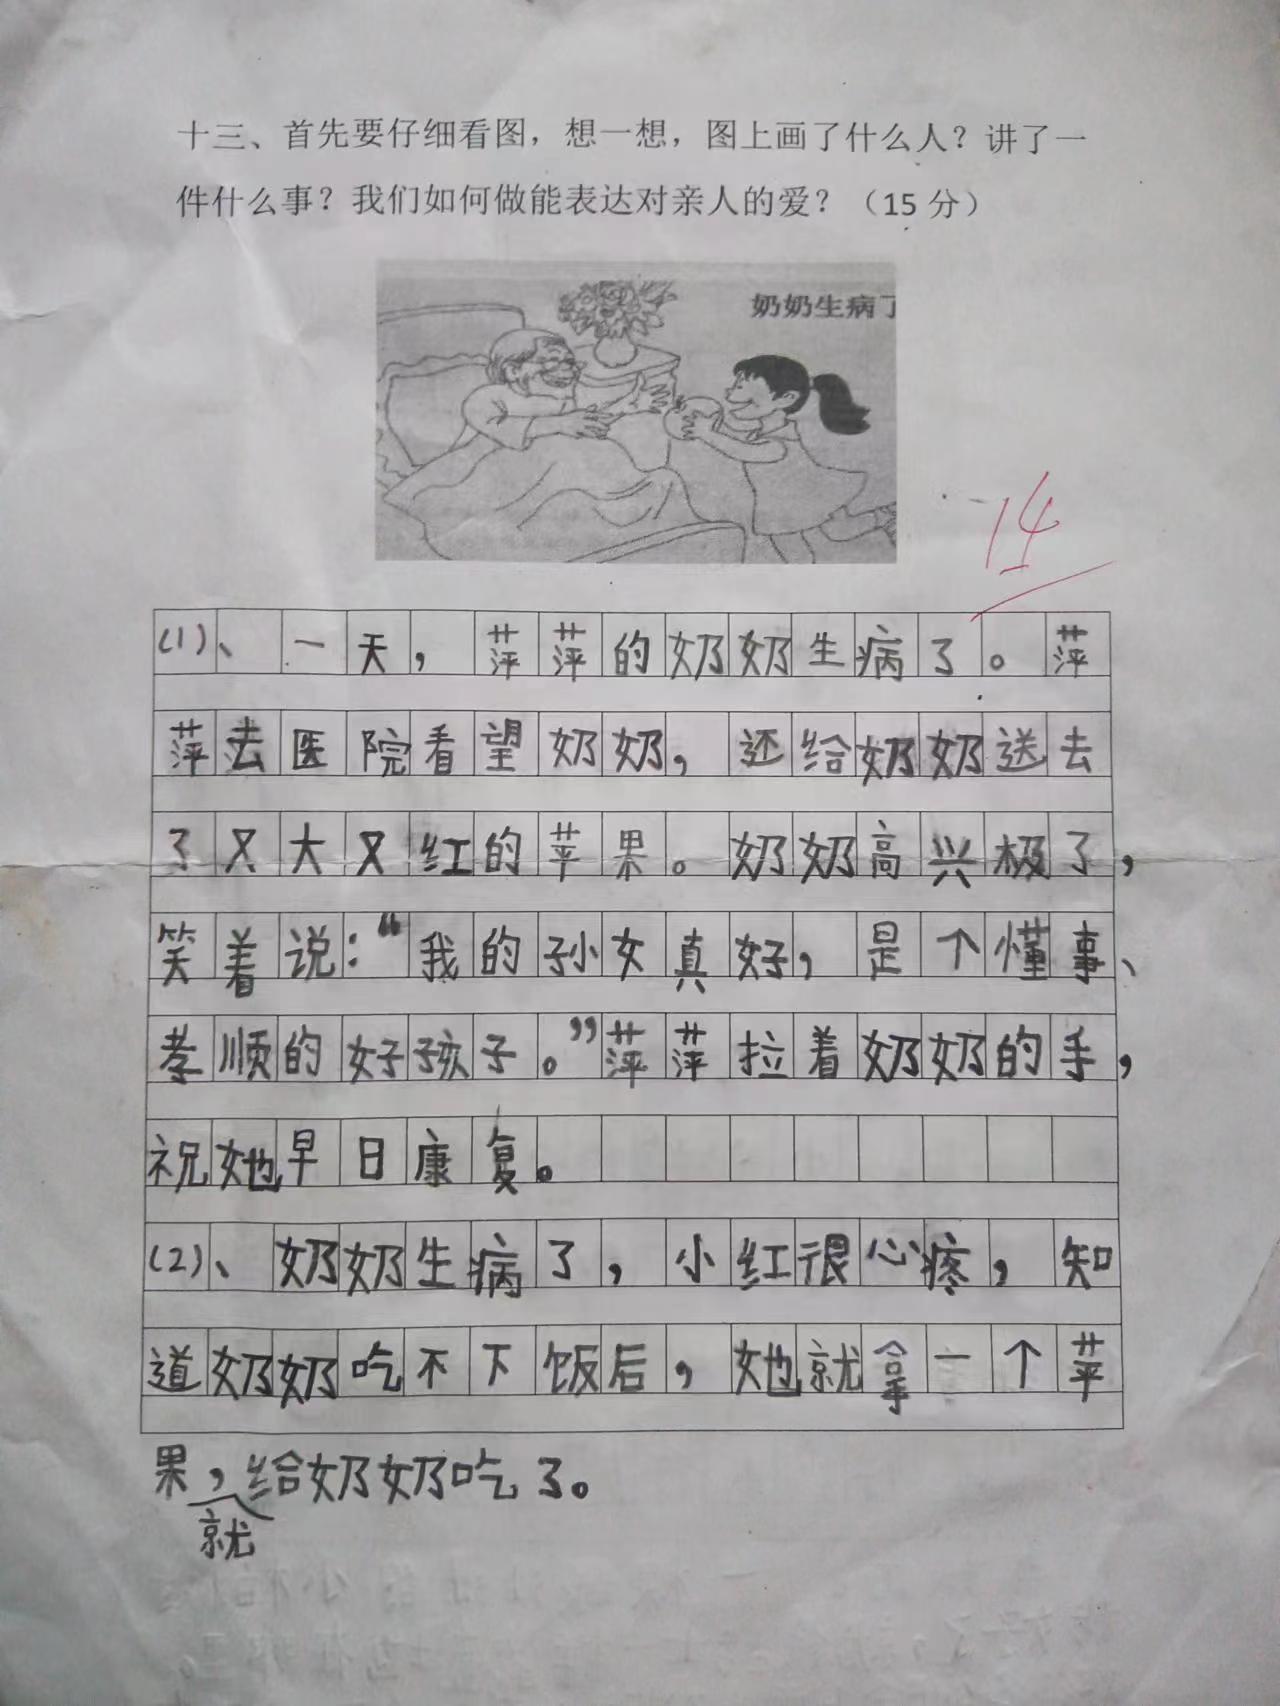 十三、首先要仔细看图，想一想，图上画了什么人？讲了一
件什么事？我们如何做能表达对亲人的爱？（15 分）
奶奶生病了
14
(1)、一天，萍萍的奶奶生病了。萍
萍去医院看望奶奶，还给奶奶送去
了又大又红的苹果。奶奶高兴极了，
笑着说：“我的孙女真好，是个懂事、
孝顺的好孩子。”萍萍拉着奶奶的手，
祝她早日康复。
(2)、奶奶生病了，小红很心疼，知
道奶奶吃不下饭后，她就拿一个苹
果，给奶奶吃了。
就